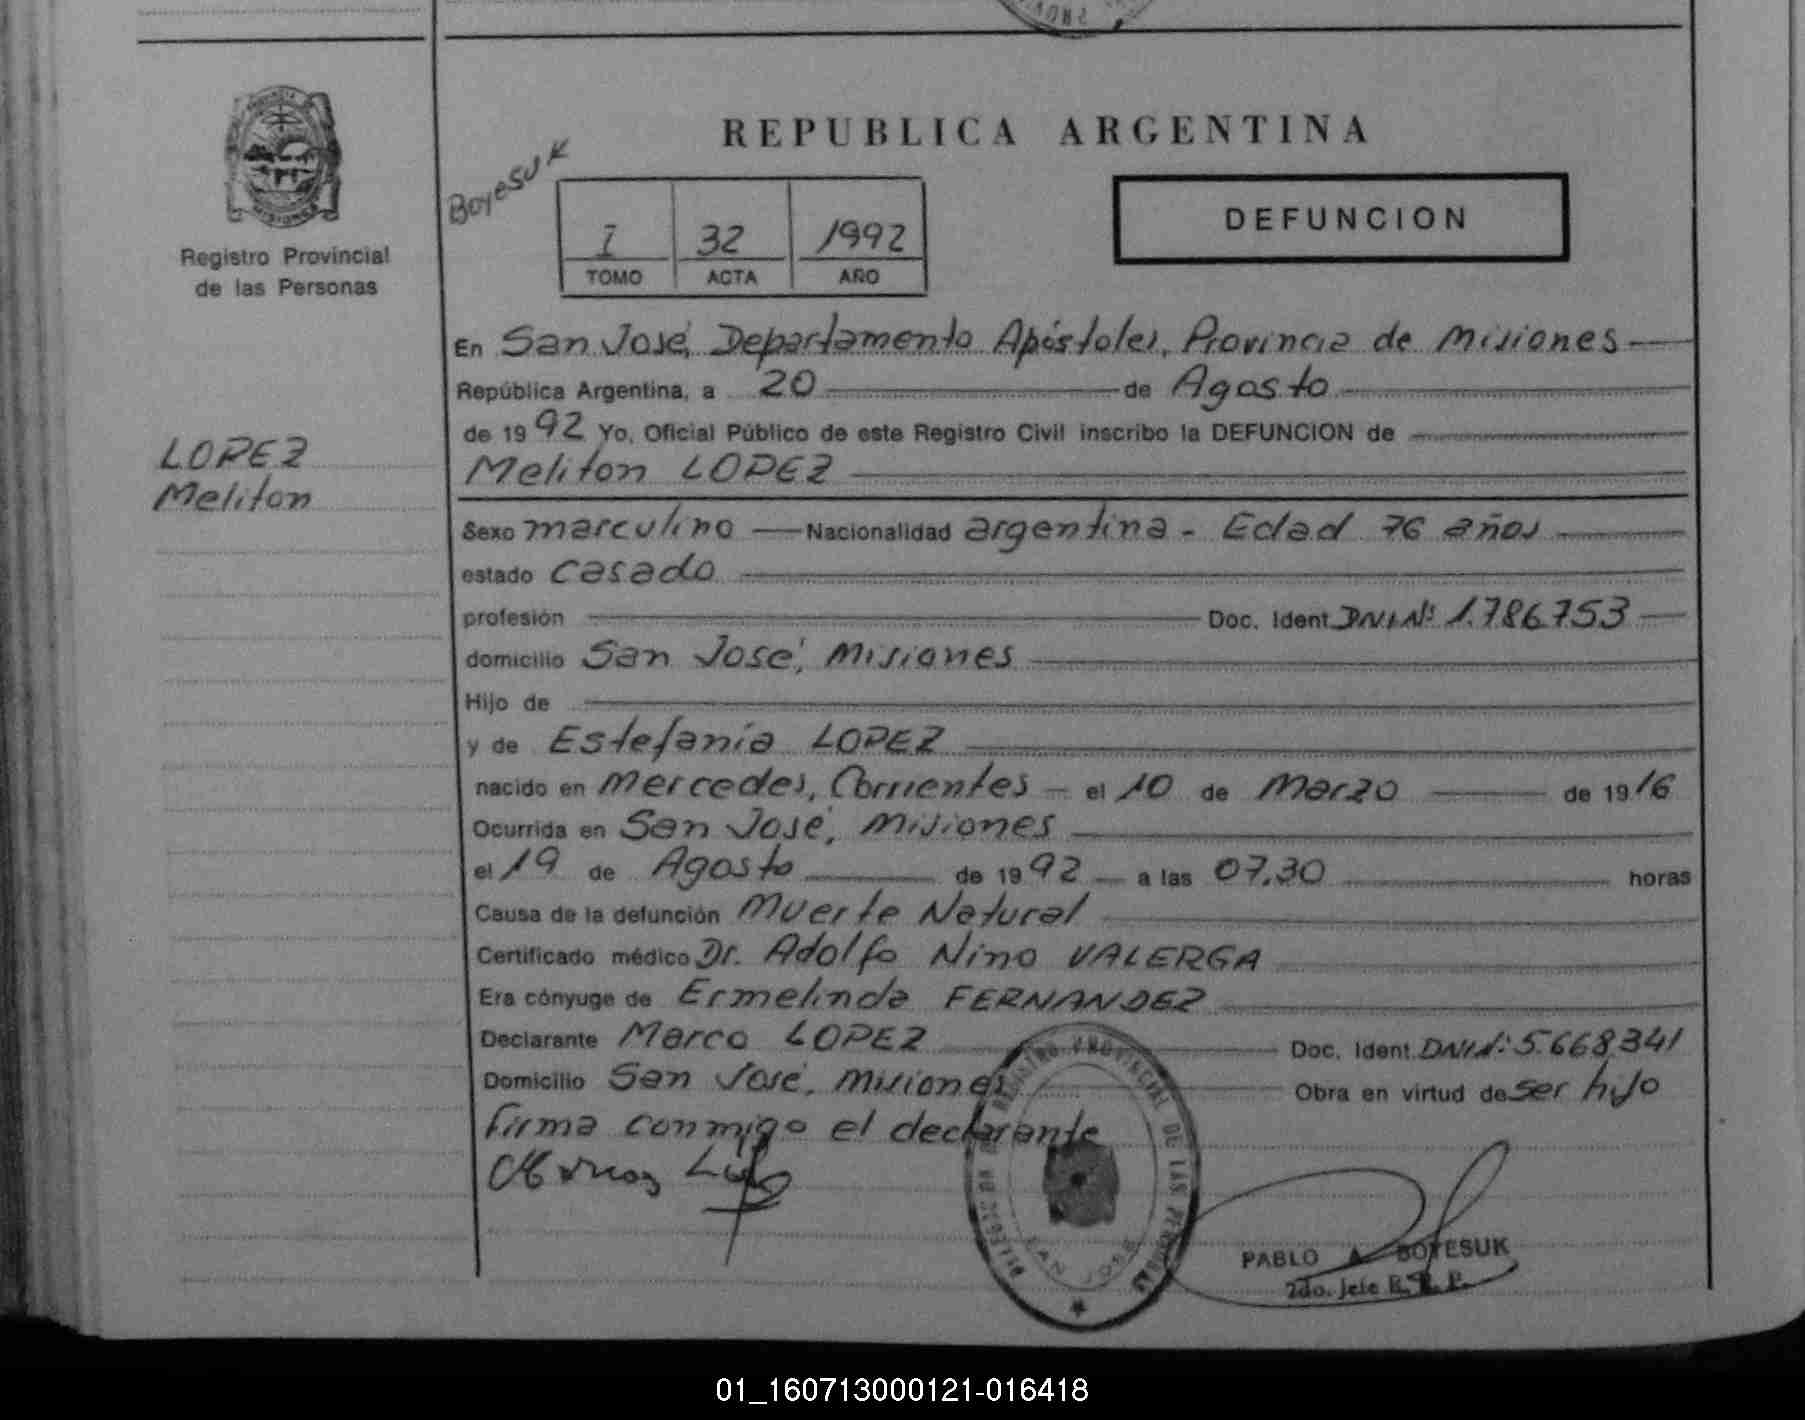 REPUBLICA ARGENTINA
Registro Provincial
de las Personas
Boyesuk
I 32 1992
TOMO ACTA AÑO
DEFUNCION
LOPEZ
Meliton
En San José, Departamento Apóstoles, Provincia de Misiones
República Argentina, a 20 de Agosto
de 1992 Yo, Oficial Público de este Registro Civil inscribo la DEFUNCION de
Meliton LOPEZ
Sexo masculino Nacionalidad argentina - Edad 76 años
estado casado
profesión Doc. Ident. DNI Nº 1.786.753
domicilio San José, Misiones
Hijo de
y de Estefanía LOPEZ
nacido en Mercedes, Corrientes el 10 de Marzo de 1916
Ocurrida en San José, Misiones
el 19 de Agosto de 1992 a las 07.30 horas
Causa de la defunción Muerte Natural
Certificado médico Dr. Adolfo Nino VALERGA
Era cónyuge de Ermelinda FERNANDEZ
Declarante Marco LOPEZ Doc. Ident. DNI Nº: 5.668.341
Domicilio San José, Misiones Obra en virtud de ser hijo
firma conmigo el declarante
REGISTRO PROVINCIAL DE LAS PERSONAS
SAN JOSE
PABLO A BOYESUK
2do. Jefe R. P. P.
01_160713000121-016418